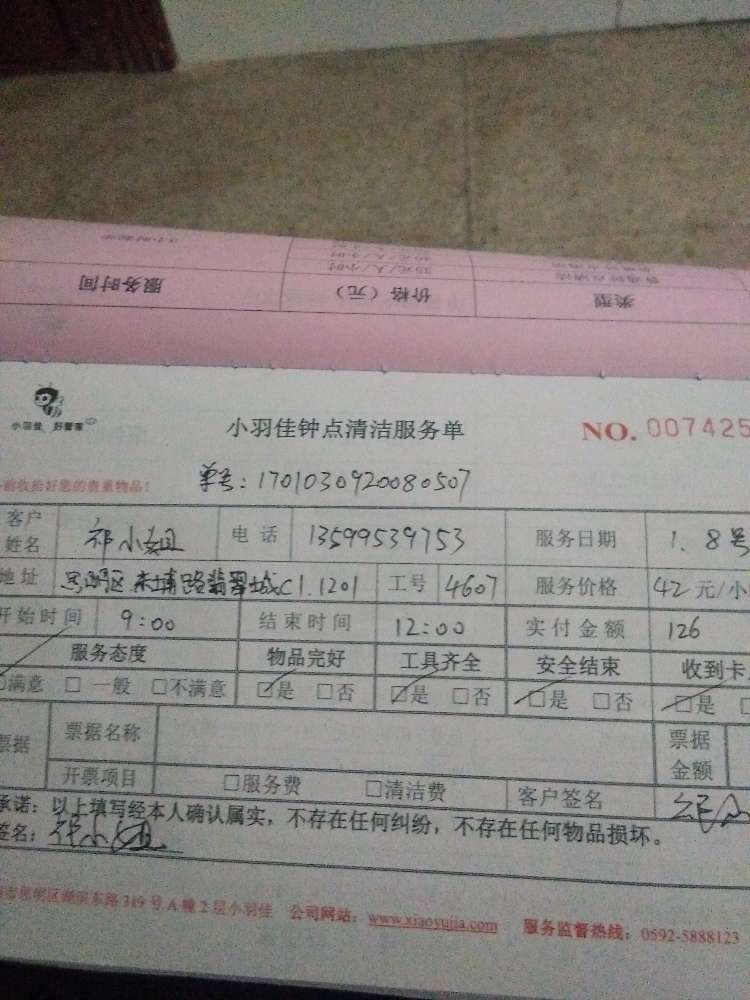 服务时间 价格（元） 类型
35元/人/小时
小羽佳 好管家
小羽佳钟点清洁服务单 NO. 007425
前收拾好您的贵重物品！
单号：1701030920080507
客户姓名 祁小姐 电话 13599539753 服务日期 1.8号
地址 思明区 路翡翠城C1.1201 工号 4607 服务价格 42元/小
开始时间 9:00 结束时间 12:00 实付金额 126
服务态度 物品完好 工具齐全 安全结束 收到卡
□满意 □一般 □不满意 □是 □否 □是 □否 □是 □否 □是
票据 票据名称 票据金额
开票项目 □服务费 □清洁费 客户签名
承诺：以上填写经本人确认属实，不存在任何纠纷，不存在任何物品损坏。
签名：祁小姐
市思明区湖滨东路319号A幢2层小羽佳 公司网站：www.xiaoyujia.com 服务监督热线：0592-5888123